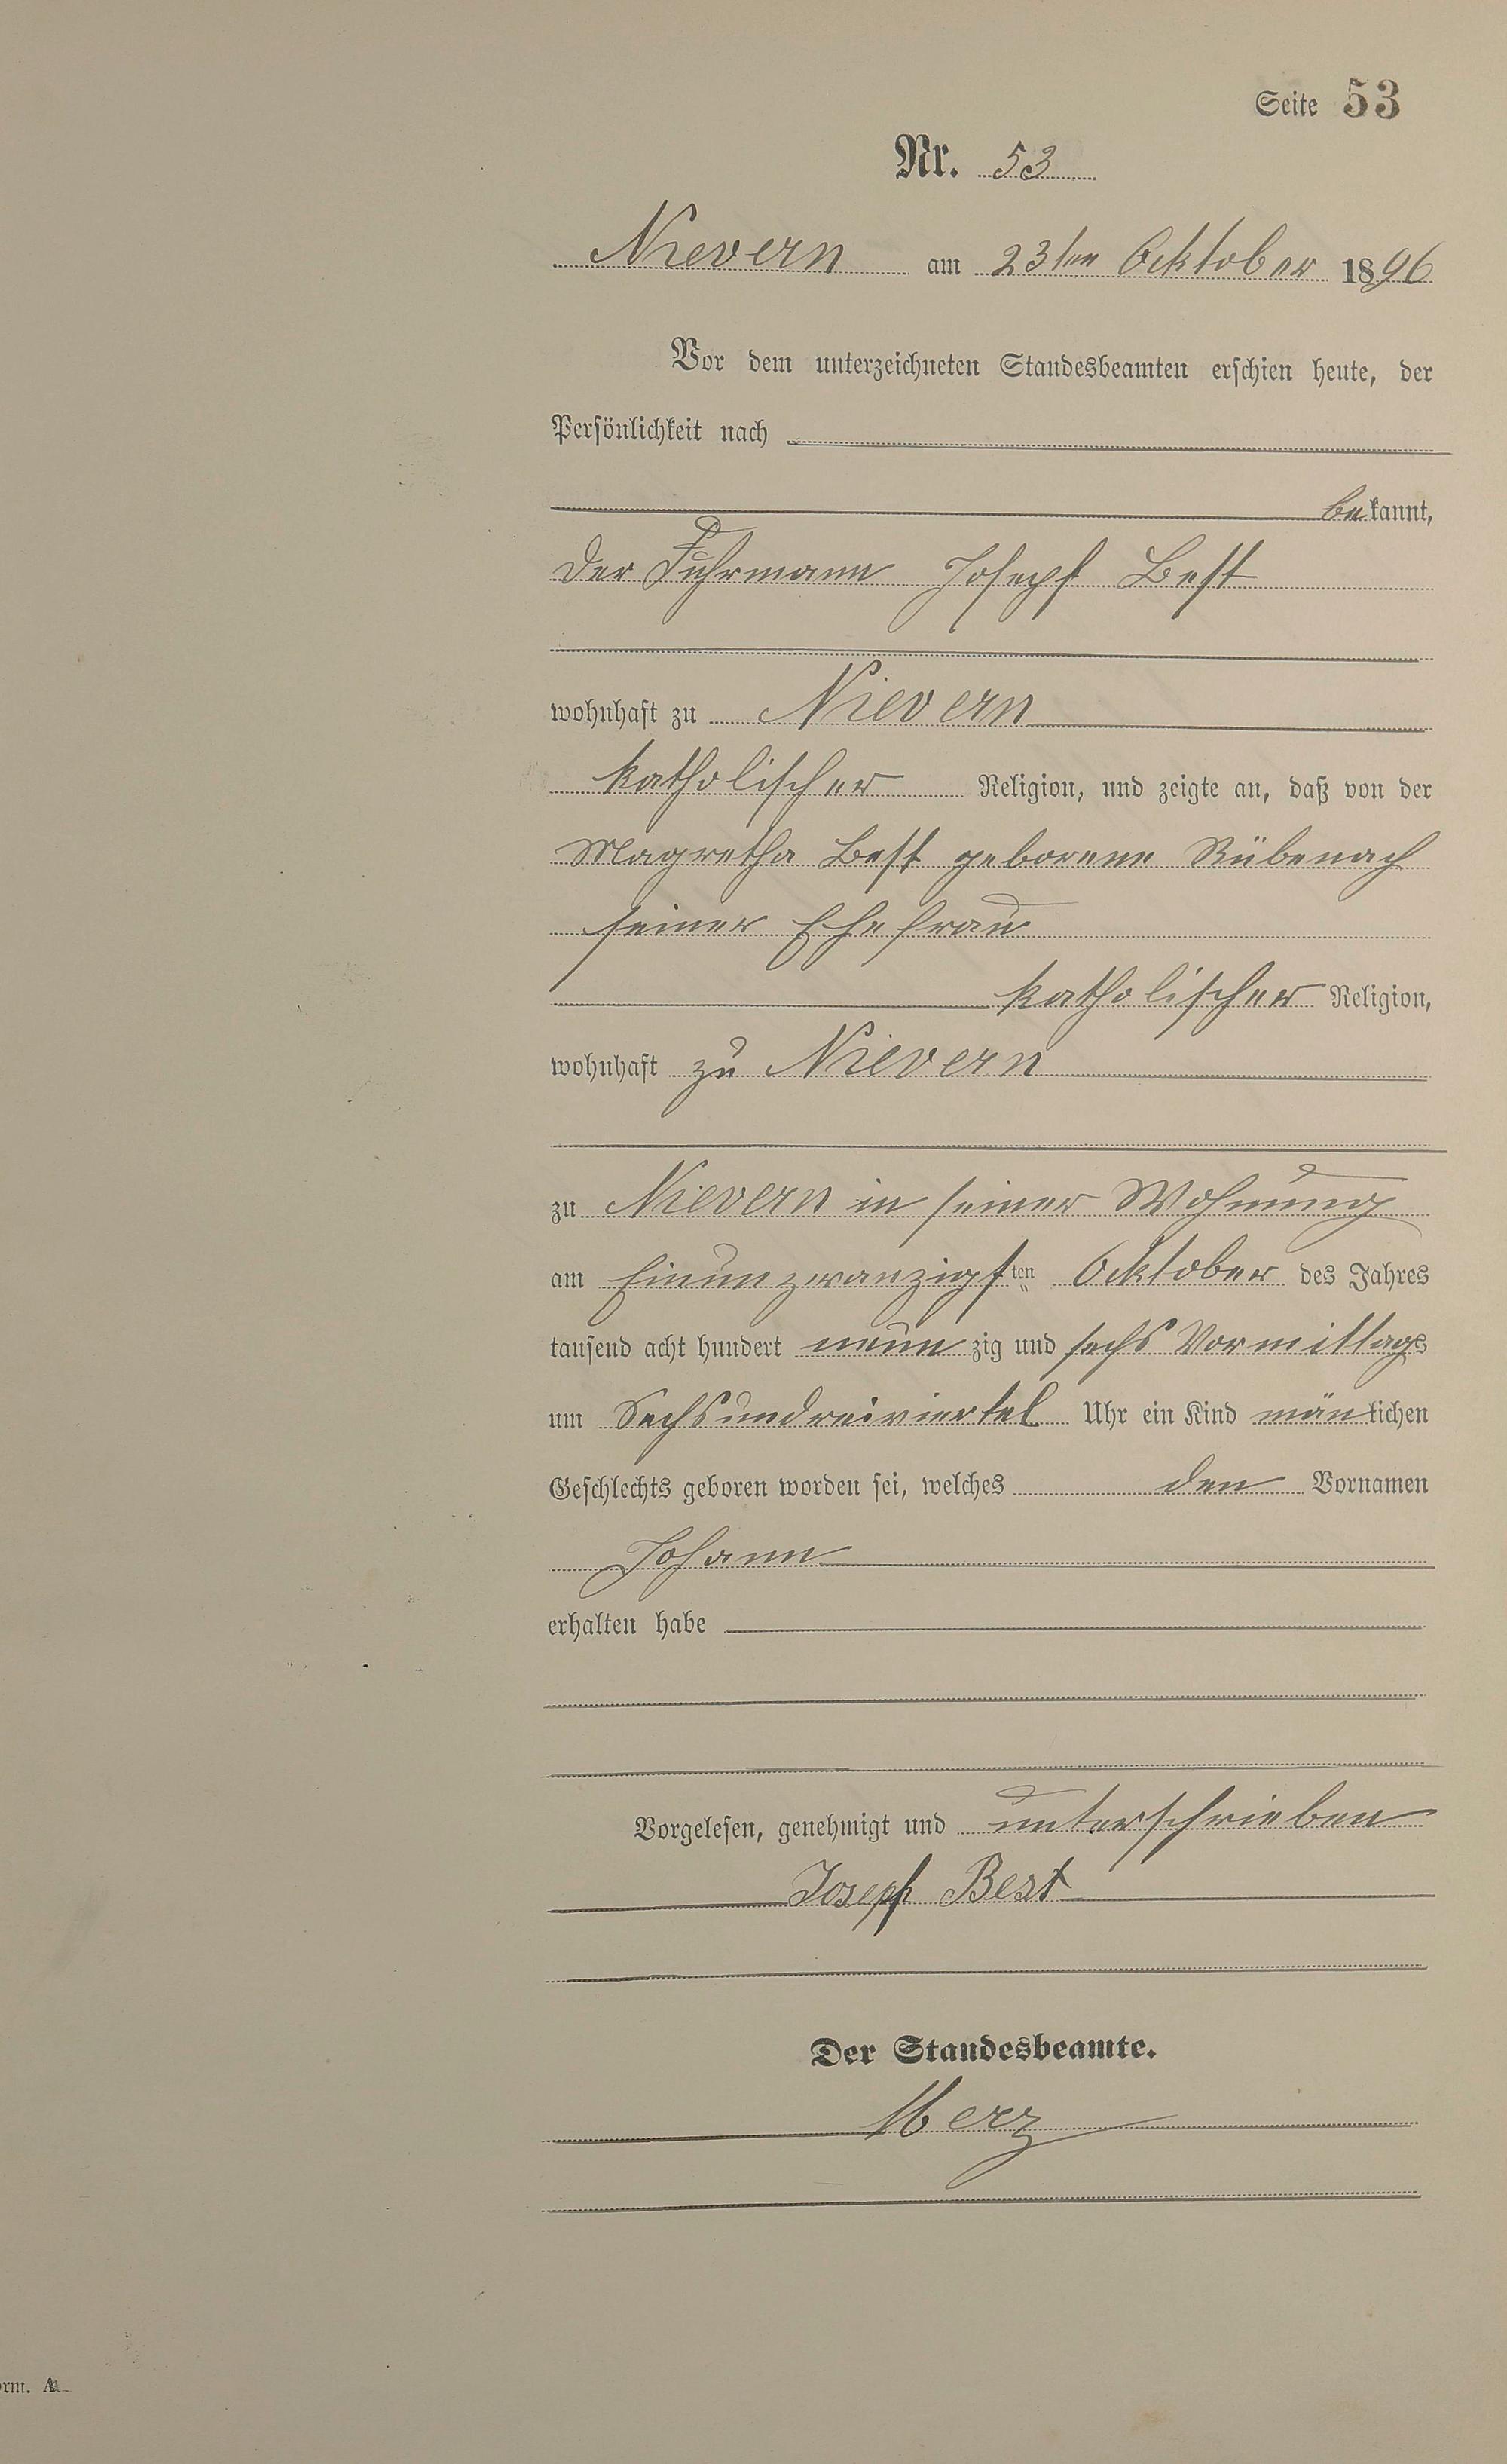 Seite 53
Nr. 53
Nievern am 23ten Ocktober 1896
Vor dem unterzeichneten Standesbeamten erschien heute, der
Persönlichkeit nach
bekannt,
der Fuhrmann Joseph Best
wohnhaft zu Nievern
katholischer Religion, und zeigte an, daß von der
Magretha Best geborene Rübenach
seiner Ehefrau
katholischer Religion,
wohnhaft zu Nievern
zu Nievern in seiner Wohnung
am Einunzwanzigsten Ocktober des Jahres
tausend acht hundert neunzig und sechs Vormittags
um Sechsundreiviertel Uhr ein Kind mänlichen
Geschlechts geboren worden sei, welches den Vornamen
Johann
erhalten habe
Vorgelesen, genehmigt und unterschrieben
Joseph Best
Der Standesbeamte.
Merz
orm. A.